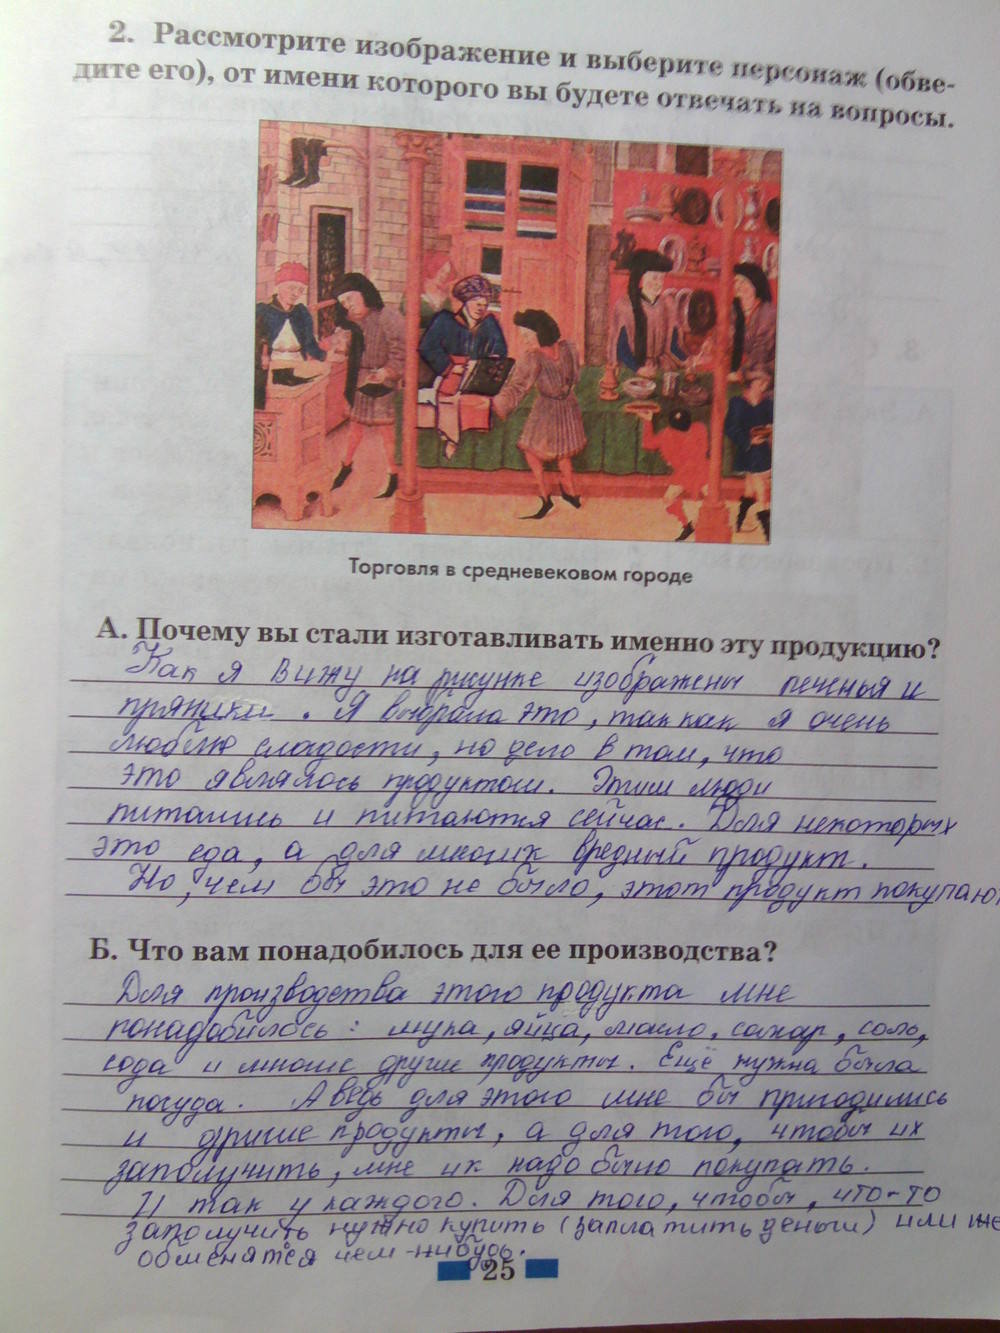 2. Рассмотрите изображение и выберите персонаж (обве-
дите его), от имени которого вы будете отвечать на вопросы.
Торговля в средневековом городе
А. Почему вы стали изготавливать именно эту продукцию?
Как я вижу на рисунке изображены печенья и
пряники. Я выбрала это, так как я очень
люблю сладости, но дело в том, что
это являлось продуктом. Этим люди
питались и питаются сейчас. Для некоторых
это еда, а для многих вредный продукт.
Но, чем бы это не было, этот продукт покупают
Б. Что вам понадобилось для ее производства?
Для производства этого продукта мне
понадобилось: мука, яйца, масло, сахар, соль,
сода и многие другие продукты. Ещё нужна была
посуда. А ведь для этого мне бы пригодились
и другие продукты, а для того, чтобы их
заполучить, мне их надо было покупать.
И так у каждого. Для того, чтобы, что-то
заполучить нужно купить (заплатить деньги) или же
обменятся чем-нибудь.
25